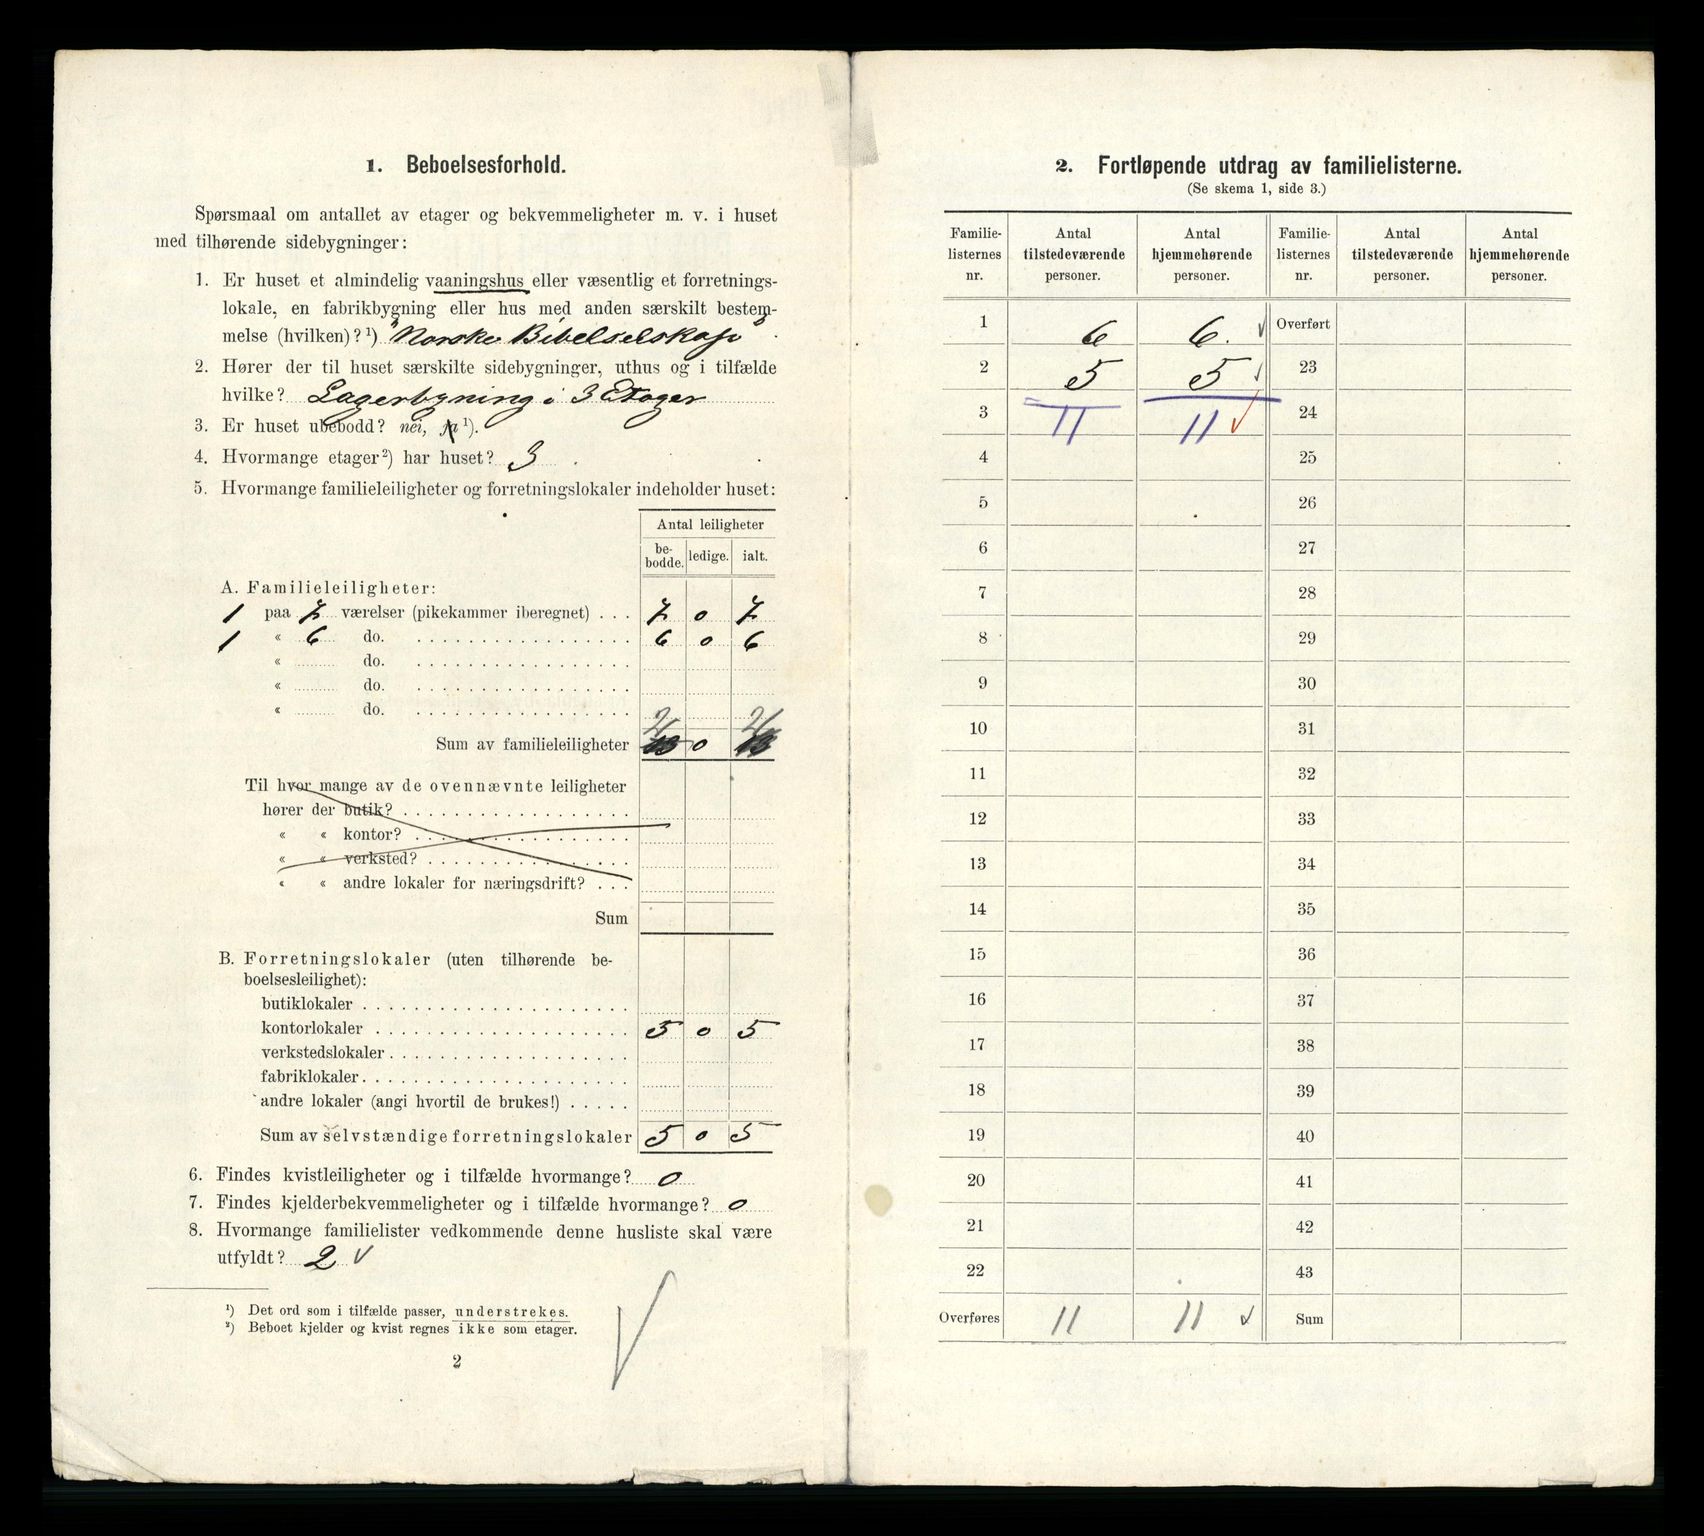 1. Beboelsesforhold.
Spørsmaal om antallet av etager og bekvemmeligheter m. v. i huset
med tilhørende sidebygninger:
1. Er huset et almindelig vaaningshus eller væsentlig et forretnings-
lokale, en fabrikbygning eller hus med anden særskilt bestem-
melse (hvilken)?¹) "Norske Bibelselskap"
2. Hører der til huset særskilte sidebygninger, uthus og i tilfælde
hvilke? Lagerbygning i 3 Etager
3. Er huset ubebodd? nei, ja ¹).
4. Hvormange etager²) har huset? 3
5. Hvormange familieleiligheter og forretningslokaler indeholder huset:
Antal leiligheter
be-bodde. ledige. ialt.
A. Familieleiligheter:
1 paa 7 værelser (pikekammer iberegnet) . . . 7 0 7
1 « 6 do. . . . . . . . . . . . . . . . . . 6 0 6
« do. . . . . . . . . . . . . . . . . .
« do. . . . . . . . . . . . . . . . . .
« do. . . . . . . . . . . . . . . . . .
2 2
Sum av familieleiligheter 13 0 13
Til hvor mange av de ovennævnte leiligheter
hører der butik? . . . . . . . . . . . . . . . . .
« « kontor? . . . . . . . . . . . . . . . .
« « verksted? . . . . . . . . . . . . . . .
« « andre lokaler for næringsdrift? . . .
Sum
B. Forretningslokaler (uten tilhørende be-
boelsesleilighet):
butiklokaler . . . . . . . . . . . . . . . . . . . .
kontorlokaler . . . . . . . . . . . . . . . . . . . 5 0 5
verkstedslokaler . . . . . . . . . . . . . . . . . .
fabriklokaler . . . . . . . . . . . . . . . . . . . .
andre lokaler (angi hvortil de brukes!) . . . . .
Sum av selvstændige forretningslokaler 5 0 5
6. Findes kvistleiligheter og i tilfælde hvormange? 0
7. Findes kjelderbekvemmeligheter og i tilfælde hvormange? 0
8. Hvormange familielister vedkommende denne husliste skal være
utfyldt? 2 ✓
¹) Det ord som i tilfælde passer, understrekes.
²) Beboet kjelder og kvist regnes ikke som etager.
2
2. Fortløpende utdrag av familielisterne.
(Se skema 1, side 3.)
Familie- Antal Antal Familie- Antal Antal
listernes tilstedeværende hjemmehørende listernes tilstedeværende hjemmehørende
nr. personer. personer. nr. personer. personer.
1 6 6. ✓ Overført
2 5 5 ✓ 23
3 11 11 ✓ 24
4 25
5 26
6 27
7 28
8 29
9 30
10 31
11 32
12 33
13 34
14 35
15 36
16 37
17 38
18 39
19 40
20 41
21 42
22 43
Overføres 11 11 ✓ Sum